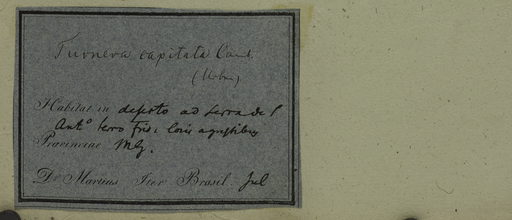 Turnera capitata Camb.
(Urban)
Habitat in deserto ad Serra de S
Ant.º locis agrestibus
Provinciae MG.
Dr Martius Iter Brasil. Jul